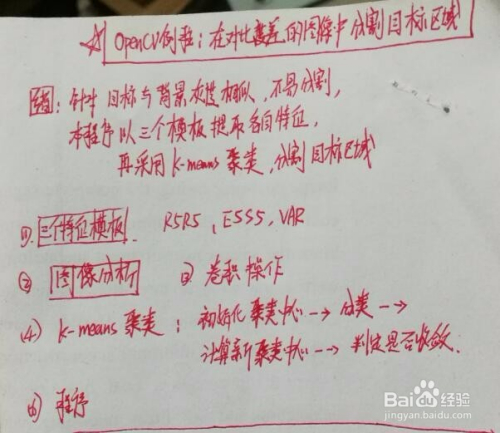 ☆ OpenCV例程：在对比度差的图像中分割目标区域
绪：针对目标与背景灰度相似，不易分割，
本程序以三个模板提取各自特征，
再采用K-means聚类，分割目标区域
①. 三个特征模板 R5R5, E5S5, VAR
② 图像分析 ③ 卷积操作
(4) K-means聚类：初始化聚类中心 → 分类 →
计算新聚类中心 → 判定是否收敛.
(5) 程序
Baidu经验
jingyan.baidu.com